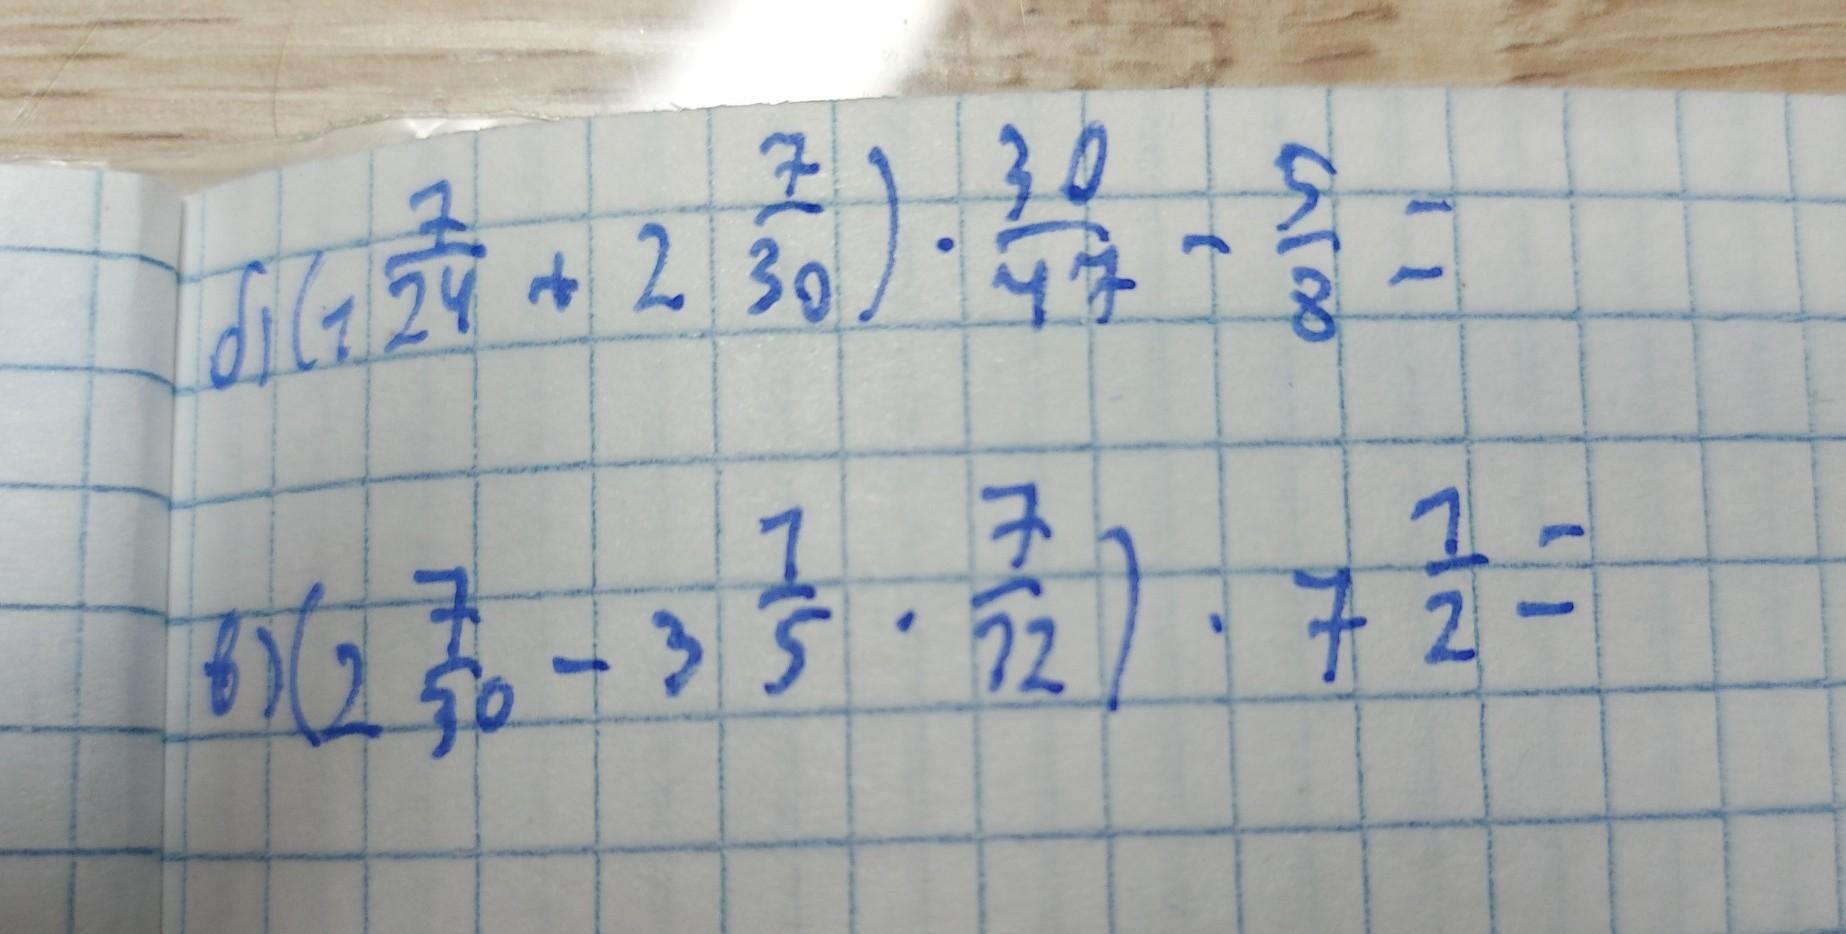 б) (1 7/24 + 2 7/30) · 30/47 - 5/8 =
в) (2 7/30 - 3 1/5 · 7/12) · 7 1/2 =